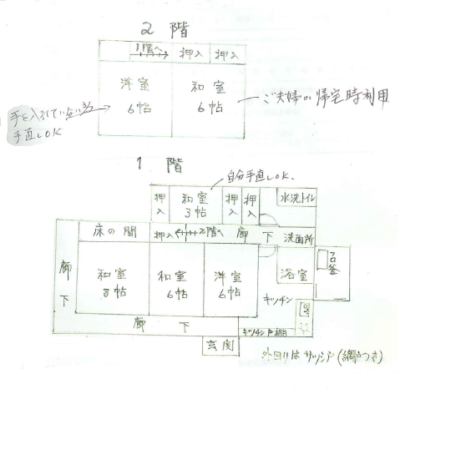 2 階
1階へ
押入
押入
洋室
6帖
和室
6帖
手を入れていない為
手直しOK
ご夫婦が帰宅時利用
1 階
自分手直しOK.
押入
和室
3帖
押入
押入
水洗トイレ
床の間
押入
2階へ
廊下
洗面所
廊下
和室
8帖
和室
6帖
洋室
6帖
浴室
キッチン
廊下
玄関
外回りはサッシ戸(網戸つき)